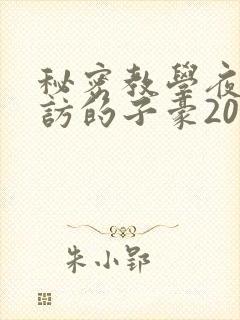 秘密教學夜
訪的子豪20
朱小郢